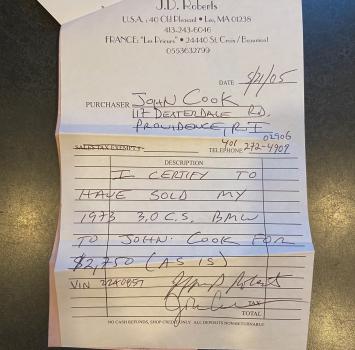 J.D. Roberts
U.S.A. : 40 Old Pleasant • Lee, MA 01238
413-243-6046
FRANCE: "Les Prieurs" • 24440 St. Croix / Beaumont
0553632799
DATE 5/21/05
PURCHASER JOHN COOK
117 DEXTERDALE RD.
PROVIDENCE, R.I
02906
SALES TAX EXEMPT # TELEPHONE 401 272-4909
DESCRIPTION
I CERTIFY TO
HAVE SOLD MY
1973 3.0 C.S. BMW
TO JOHN COOK FOR
$2,750 (AS IS)
VIN
TAX
TOTAL
NO CASH REFUNDS, SHOP CREDIT ONLY ALL DEPOSITS NONRETURNABLE